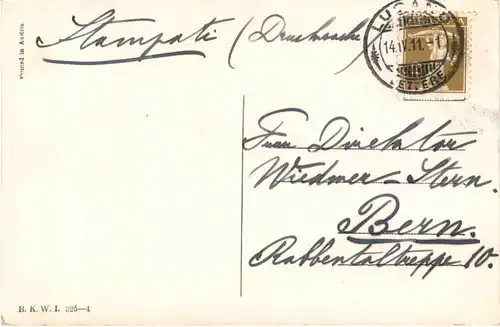 Stampati (Drucksache)
Printed in Austria.
LUGANO
14.IV.11.-1
LETTERE
Frau Direktor
Widmer-Stern.
Bern.
Rabbentaltreppe 10.
B. K. W. I. 325-4